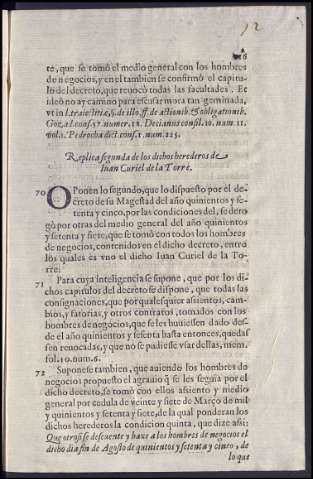 12
te, que se tomò el medio general con los hombres
de negocios, y en el tambien se confirmò el capitu-
lo del decreto, que reuocò todas las facultades. Et
ideò no ay camino para escusar mora tan geminada,
vt in l. traiectitiæ, §. de illo, ff. de actionib. & obligationib.
consil. 57. numer. 12. Decianus consil. 10. num. 11.
vol. 2. Pedrocha dict. cons. 1. num. 225.
Replica segunda de los dichos herederos de
Iuan Curiel de la Torre.
70 OPonen lo segundo, que lo dispuesto por el de-
creto de su Magestad del año quinientos y se-
tenta y cinco, por las condiciones del, se dero
gò por otras del medio general del año quinientos
y setenta y siete, que se tomò con todos los hombres
de negocios, contenidos en el dicho decreto, entre
los quales es vno el dicho Iuan Curiel de la To-
rre.
71 Para cuya inteligencia se supone, que por los di-
chos capitulos del decreto se dispone, que todas las
consignaciones, que por qualesquier assientos, cam-
bios, y fatorias, y otros contratos, tomados con los
hombres de negocios, que se les huuiessen dado des-
de el año quinientos y sesenta hasta entonces, quedas
sen reuocadas, y que no se pudiesse vsar dellas, mem.
fol. 10. num. 6.
72 Suponese tambien, que auiendo los hombres de
negocios propuesto el agrauio que se les seguia por el
dicho decreto, se tomò con ellos assiento y medio
general por cedula de veinte y siete de Março de mil
y quinientos y setenta y siete, de la qual ponderan los
dichos herederos la condicion quinta, que dize assi:
Que otrosi se descuente y baxe a los hombres de negocios el
dicho dia fin de Agosto de quinientos y setenta y cinco, de
lo que